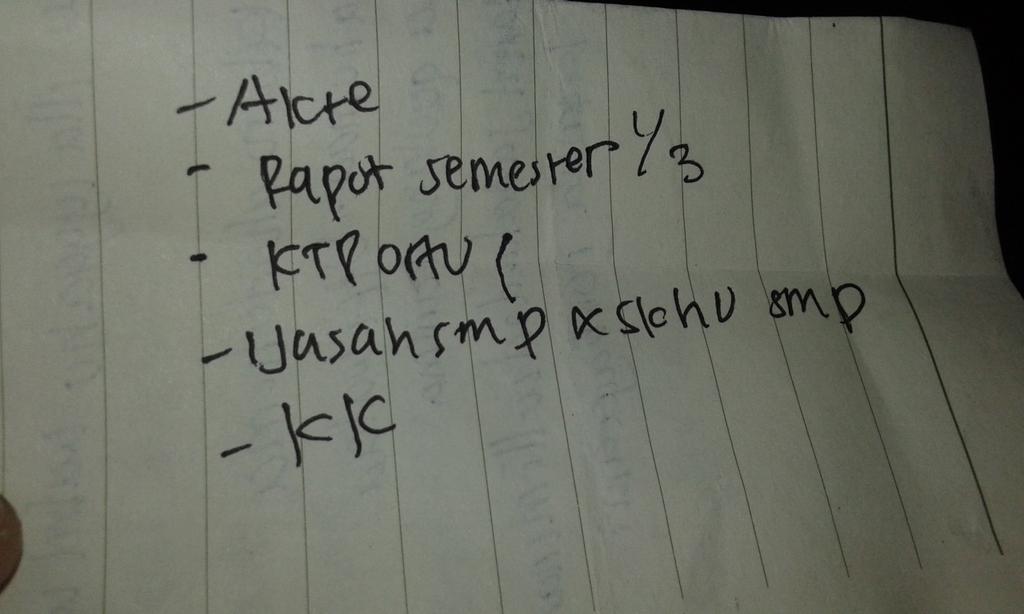 - Akte
- Rapot semester 1/3
- KTP OrtU (
- Ijasah smp & skhU smp
- KK